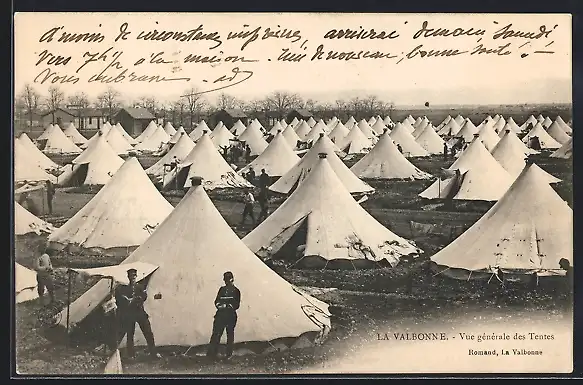 A moins de circonstances imprévues, arriverai Demain Samedi
Vers 7h½ à la maison. Rien de nouveau, bonne santé !
Vous embrasse.
LA VALBONNE. - Vue générale des Tentes
Romand, La Valbonne